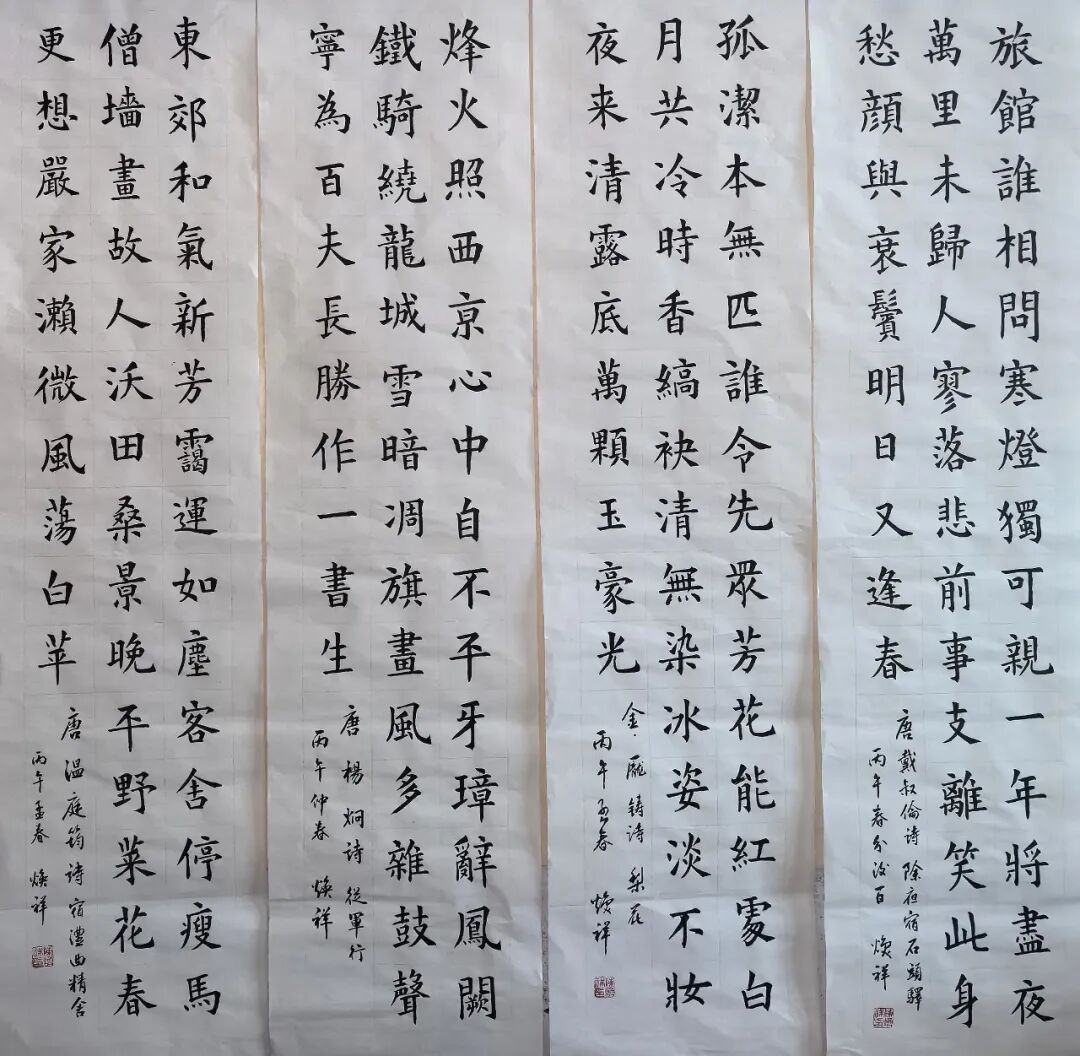 旅館誰相問寒燈獨可親一年將盡夜
萬里未歸人寥落悲前事支離笑此身
愁顏與衰鬢明日又逢春
唐戴叔倫诗 除夜宿石頭驛
丙午春分 煥祥
孤潔本無匹誰令先眾芳花能紅處白
月共冷時香縞袂清無染冰姿淡不妝
夜来清露底萬顆玉豪光
金·龐铸诗 梨花
丙午孟春 煥祥
烽火照西京心中自不平牙璋辭鳳闕
鐵騎繞龍城雪暗凋旗畫風多雜鼓聲
寧為百夫長勝作一書生
唐楊炯诗 從軍行
丙午仲春 煥祥
東郊和氣新芳靄運如塵客舍停瘦馬
僧墻畫故人沃田桑景晚平野菜花春
更想嚴家瀨微風蕩白苹
唐温庭筠诗宿澧曲精舍
丙午孟春 煥祥